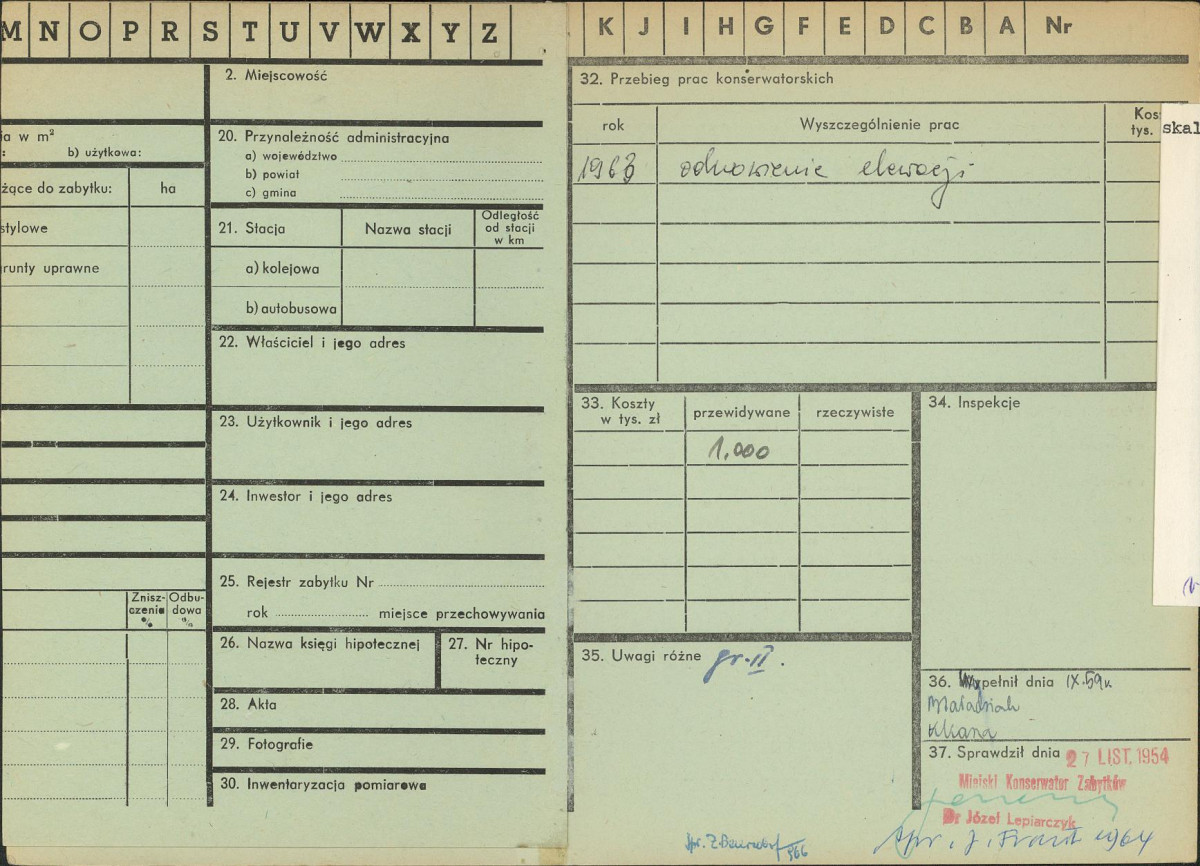 M N O P R S T U V W X Y Z
K J I H G F E D C B A Nr
2. Miejscowość
ia w m²
b) użytkowa:
żące do zabytku: ha
stylowe
runty uprawne
20. Przynależność administracyjna
a) województwo
b) powiat
c) gmina
21. Stacja Nazwa stacji Odległość
od stacji
w km
a) kolejowa
b) autobusowa
22. Właściciel i jego adres
23. Użytkownik i jego adres
24. Inwestor i jego adres
25. Rejestr zabytku Nr
rok miejsce przechowywania
Znisz-
czenia
%
Odbu-
dowa
%
26. Nazwa księgi hipotecznej
27. Nr hipo-
teczny
28. Akta
29. Fotografie
30. Inwentaryzacja pomiarowa
32. Przebieg prac konserwatorskich
rok Wyszczególnienie prac Kos
tys.
skal
1963 odnowienie elewacji
33. Koszty
w tys. zł
przewidywane rzeczywiste
1.000
34. Inspekcje
35. Uwagi różne gr. II.
36. Wypełnił dnia IX.59 r.
37. Sprawdził dnia 27 LIST. 1954
Miejski Konserwator Zabytków
Dr Józef Lepiarczyk
Spr. J. 1964
Spr. Z. 966